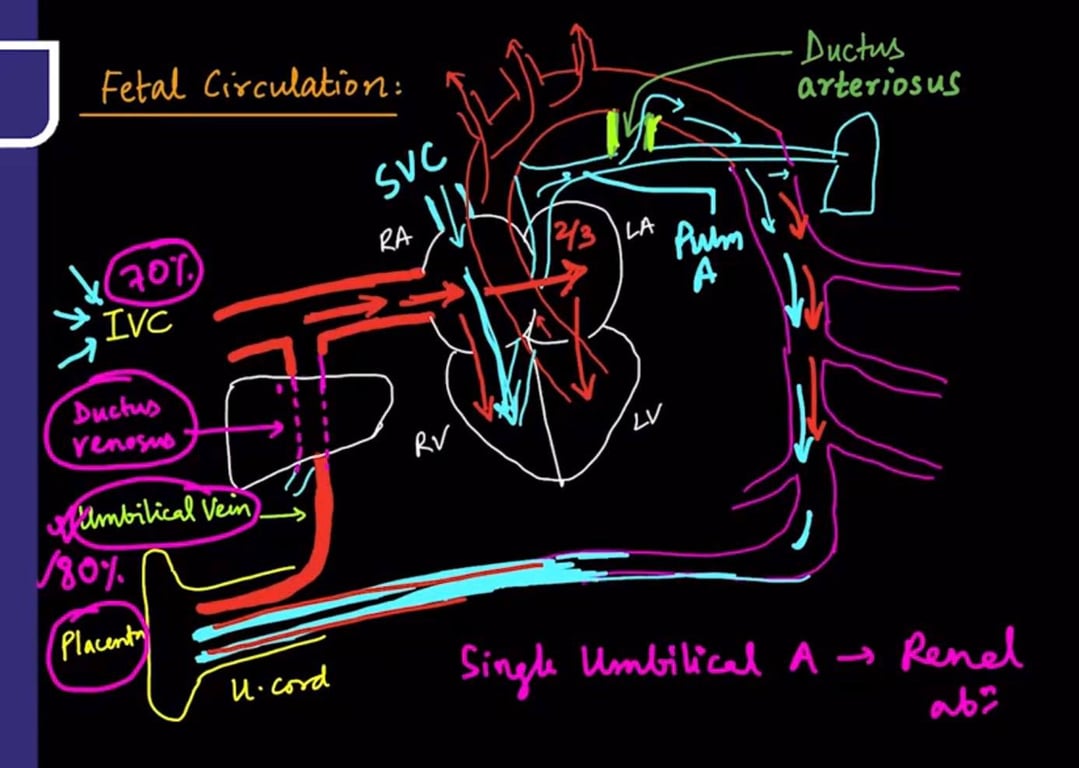 Fetal Circulation:
Ductus
arteriosus
SVC
RA
2/3
LA
Pulm
A
70%
IVC
Ductus
venosus
RV
LV
Umbilical Vein
80%
Placenta
U. cord
Single Umbilical A → Renal
abn